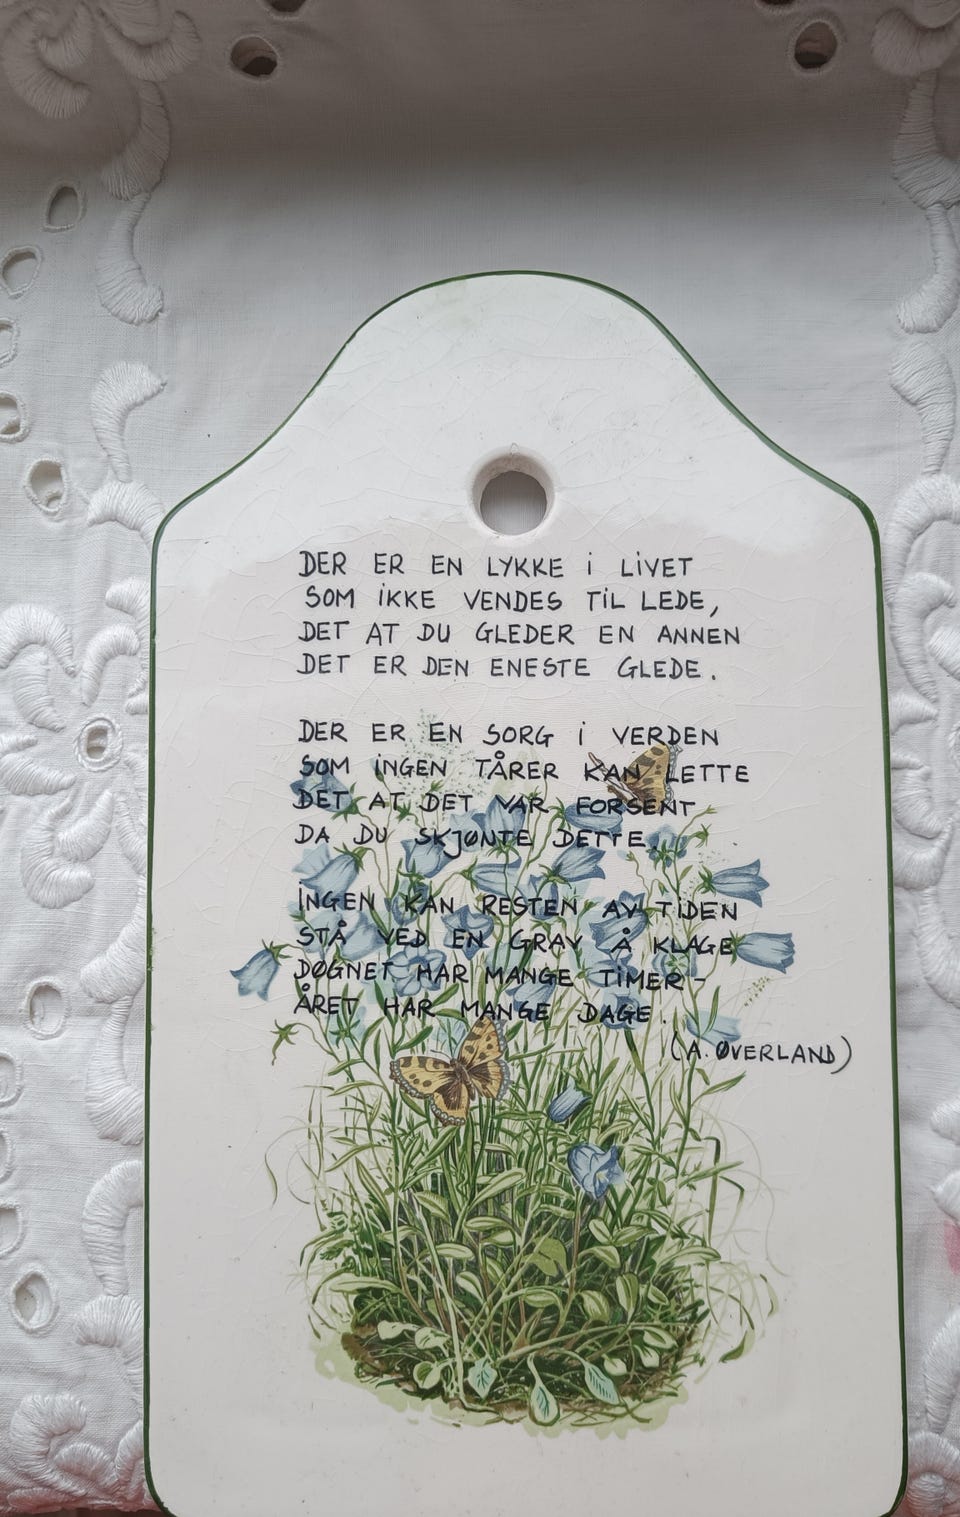 DER ER EN LYKKE i LiVET
SOM iKKE VENDES TiL LEDE,
DET AT DU GLEDER EN ANNEN
DET ER DEN ENESTE GLEDE.
DER ER EN SORG i VERDEN
SOM iNGEN TÅRER KAN LETTE
DET AT DET VAR FORSENT
DA DU SKJØNTE DETTE.
iNGEN KAN RESTEN AV TiDEN
STÅ VED EN GRAV Å KLAGE
DØGNET HAR MANGE TiMER-
ÅRET HAR MANGE DAGE.
(A. ØVERLAND)